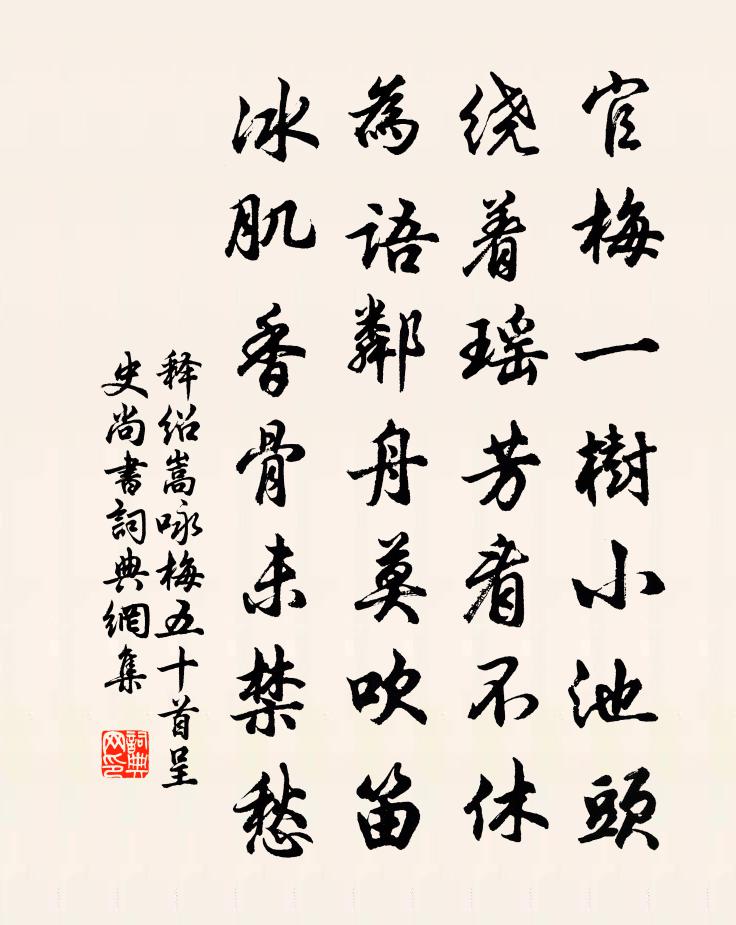 官梅一樹小池頭
绕着瑶芳看不休
為語鄰舟莫吹笛
冰肌香骨未禁愁
释绍嵩咏梅五十首呈
史尚書詞典網集
詞典
网印